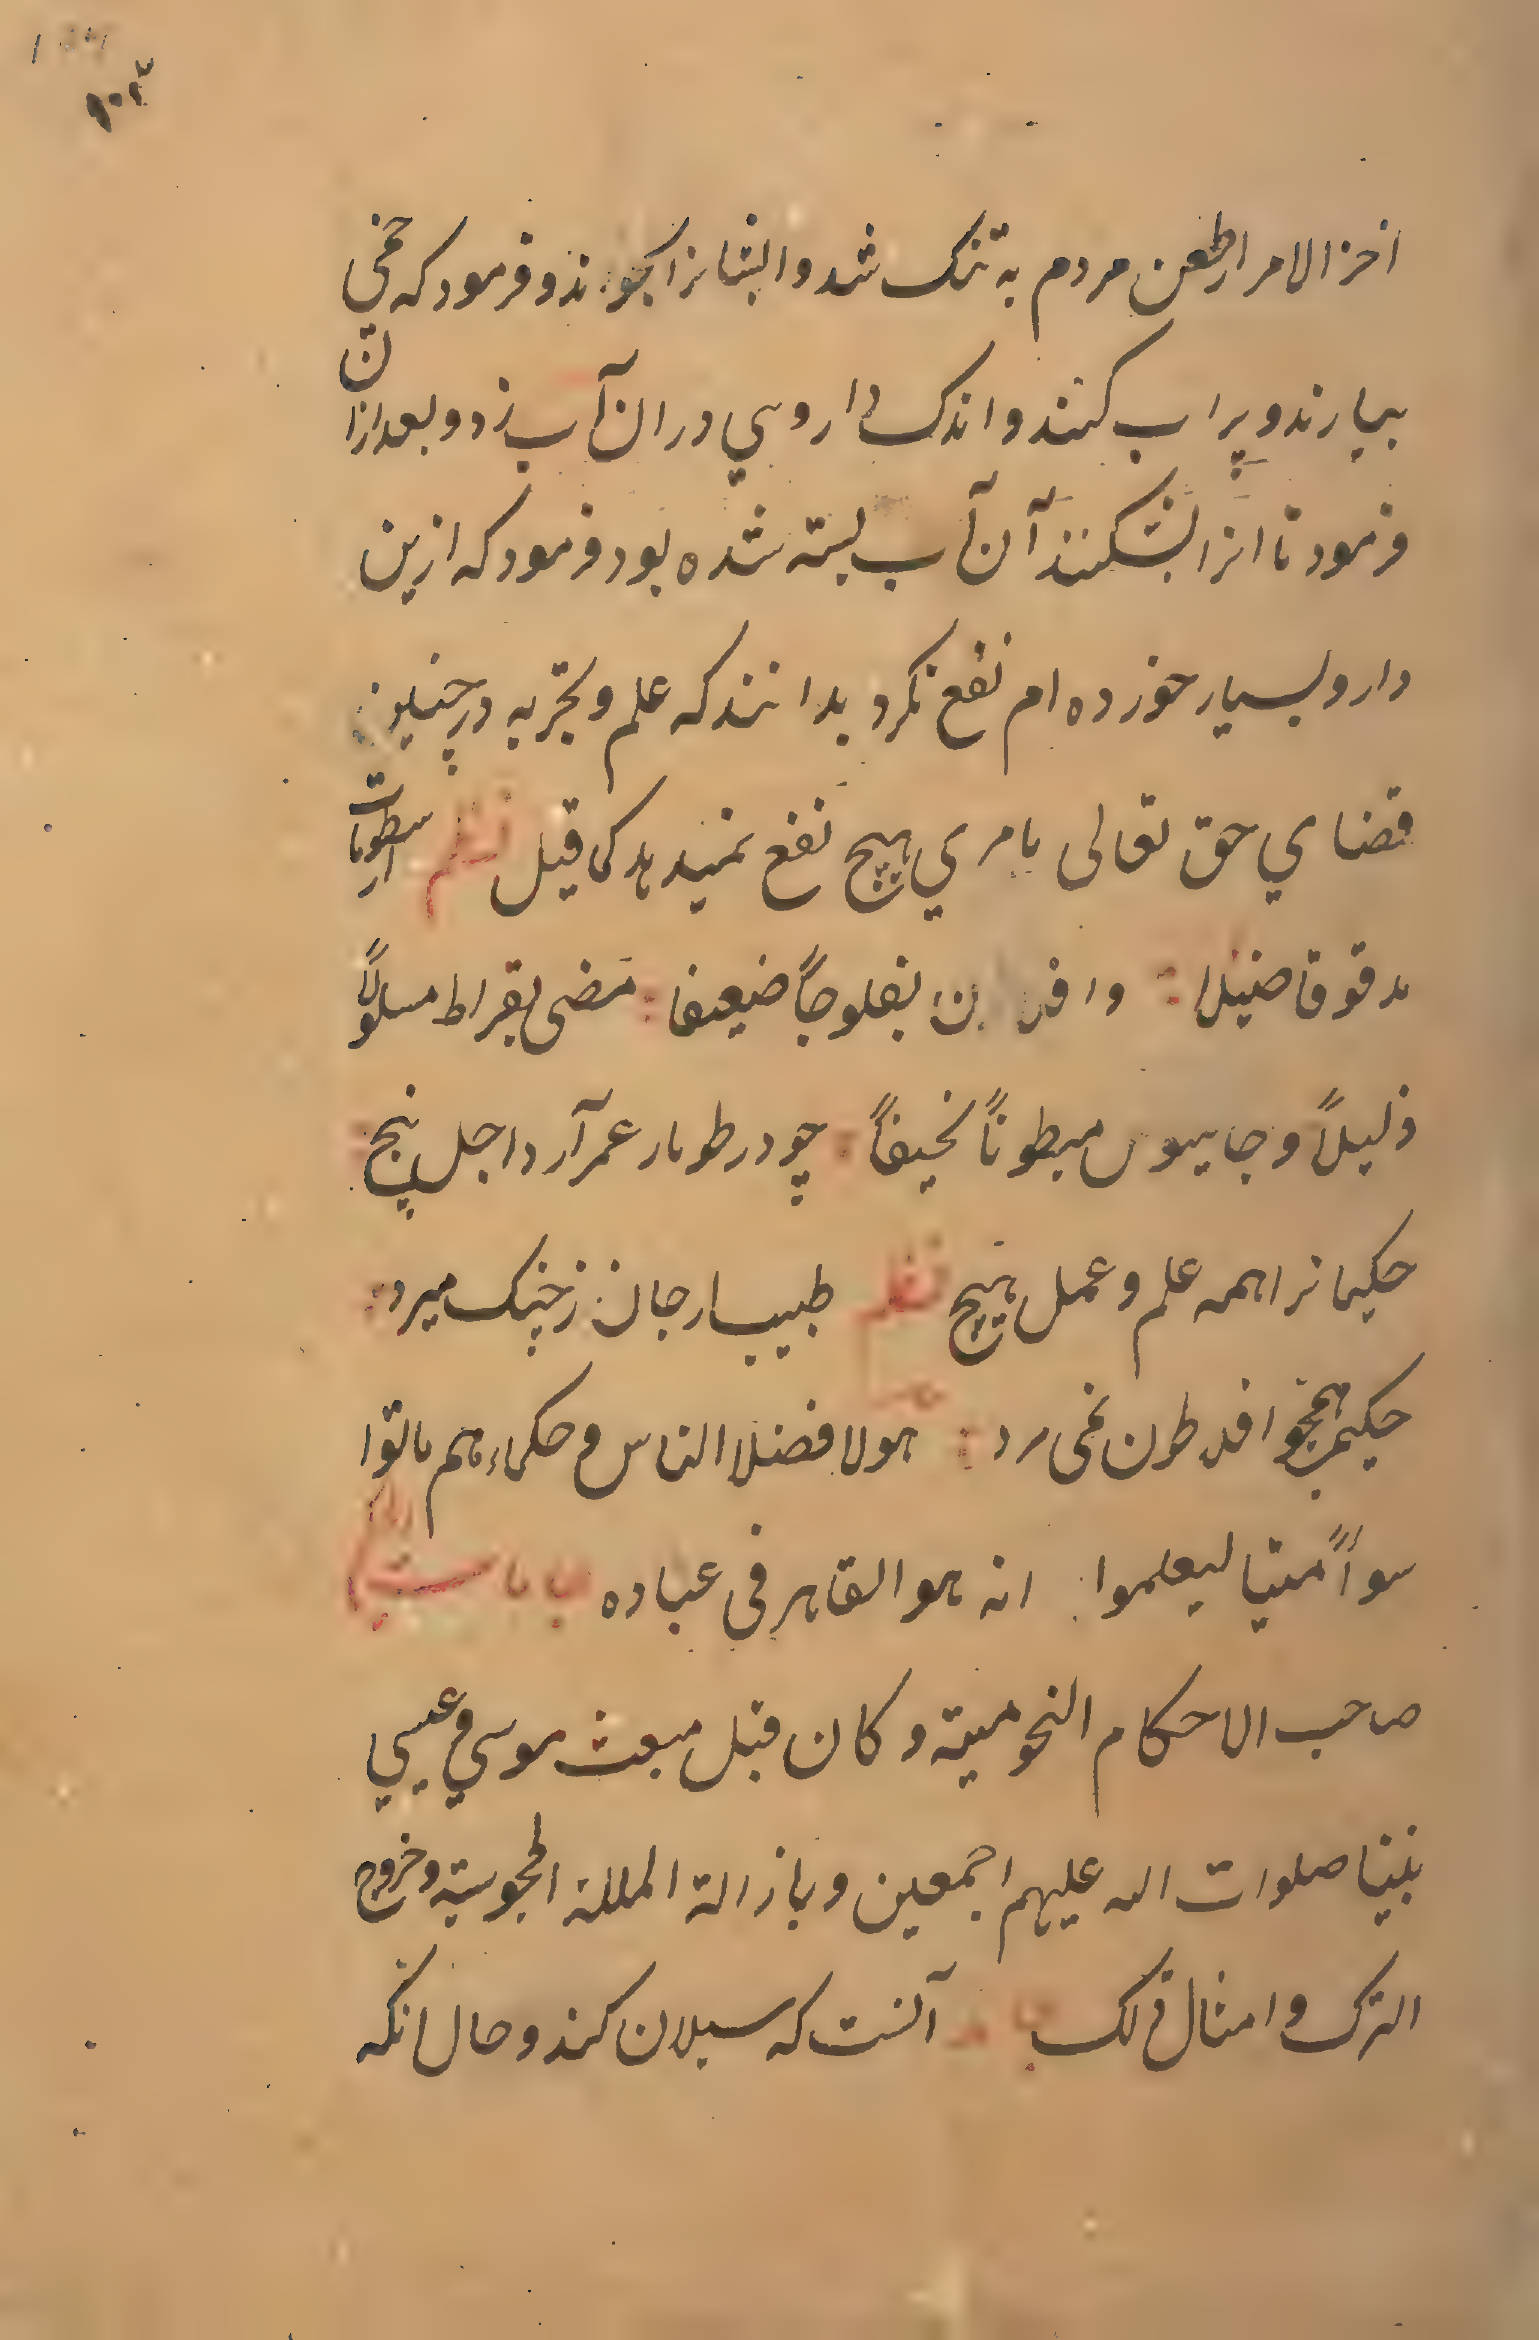 ۹۰۳
اخر الامر از طعن مردم به تنک شد و ایشانرا بخواند و فرمود که خمی
بیارند و پر اب کنند و اندک داروی دران آب زد و بعد ازان
فرمود تا انرا بشکنند آن آب بسته شده بود فرمود که ازین
دارو بسیار خورده ام نفع نکرد بدانند که علم و تجربه در چنین
قضای حق تعالی بامری هیچ نفع نمیدهد کما قیل نظم ارسطو مات
مدقوقا ضئیلا وافلاطون بفلوجاً ضعیفا مضی بقراط مسلولاً
ذلیلاً و جالینوس مبطوناً نحیفاً چو در طومار عمر آرد اجل پیچ
حکیمانرا همه علم و عمل هیچ نظم طبیب ار جان ز چنک میرد
حکیم همچو افلاطون نمی مرد هولا فضلا الناس و حکماءهم ماتوا
سواً میتا لیعلموا انه هو القاهر فی عباده جاماست
صاحب الاحکام النجومیة و کان قبل مبعث موسی و عیسی
نبینا صلوات الله علیهم اجمعین و بازالة الملة المجوسیة و خروج
الترک و امثال ذلک آنست که سیلان کند و حال انکه